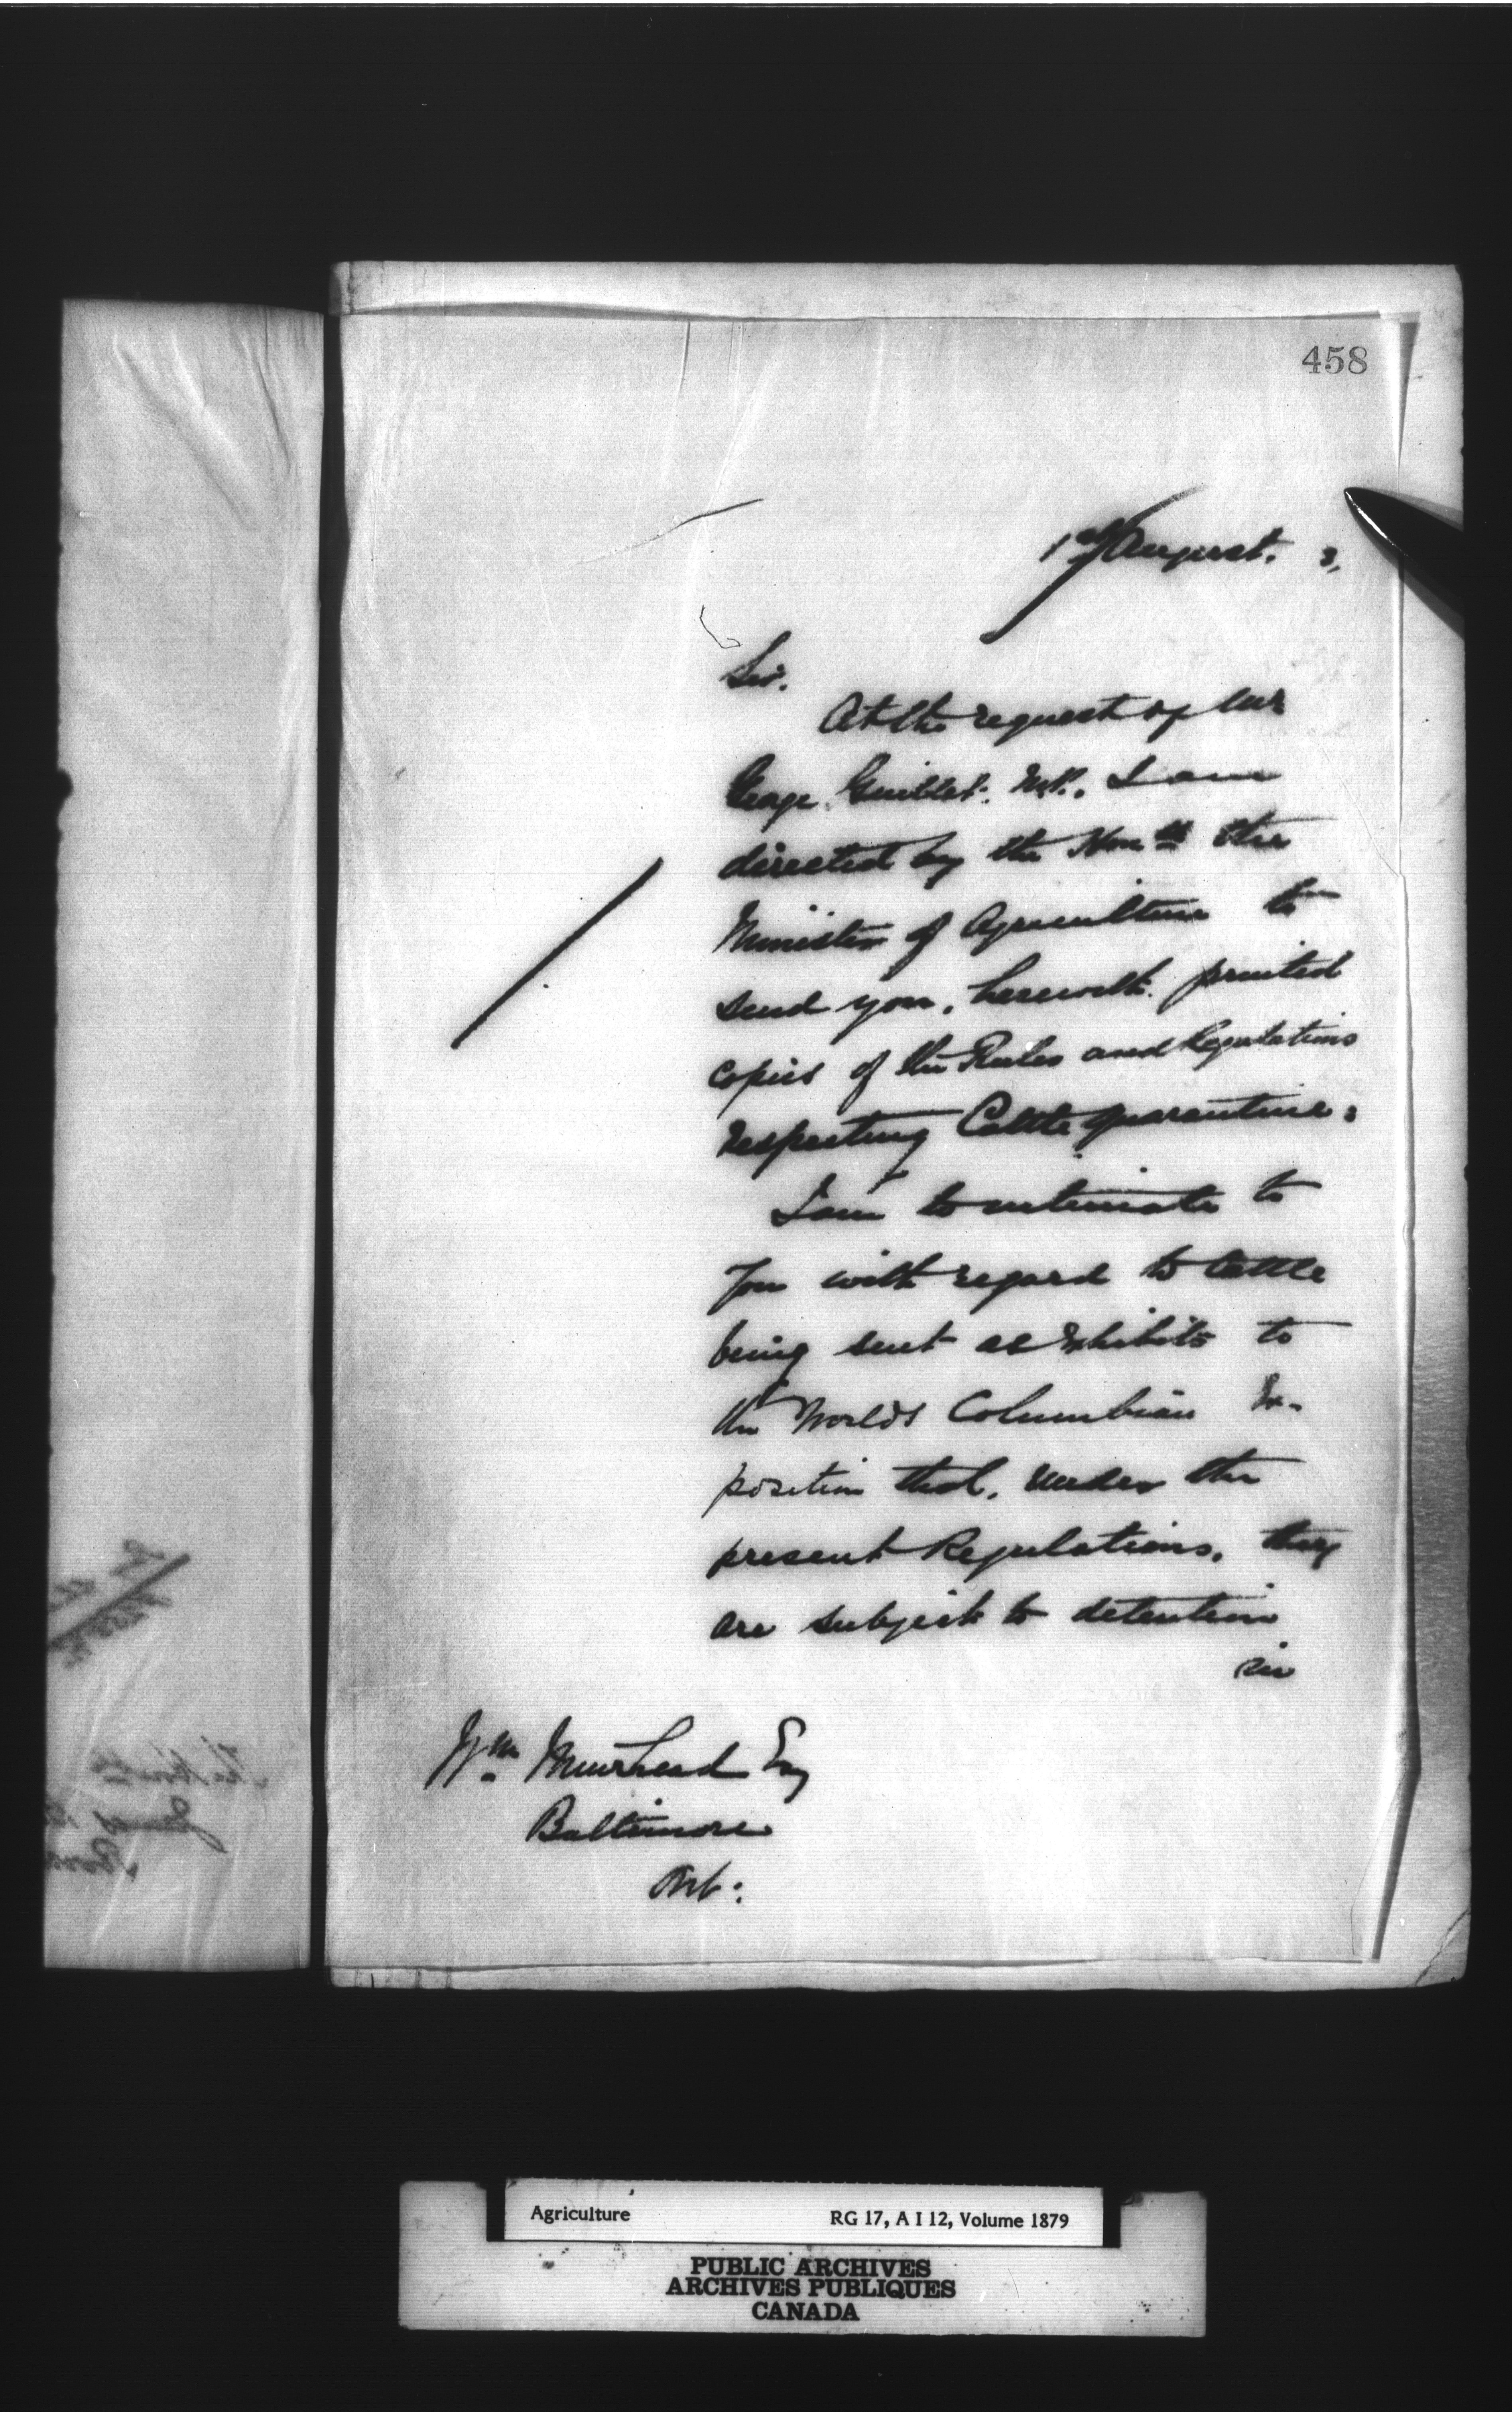 458
1st August. 3,
Sir.
At the request of Mr
George Guillet. M.P., I am
directed by the Honble the
Minister of Agriculture to
send you, herewith. printed
copies of the Rules and Regulations
respecting Cattle quarantine.
I am to intimate to
you with regard to Cattle
being sent as Exhibits to
the Worlds Columbian Ex-
position that, under the
present Regulations, they
are subject to detention
in
Wm Muirhead Esq
Baltimore
Ont.
Agriculture RG 17, A I 12, Volume 1879
PUBLIC ARCHIVES
ARCHIVES PUBLIQUES
CANADA